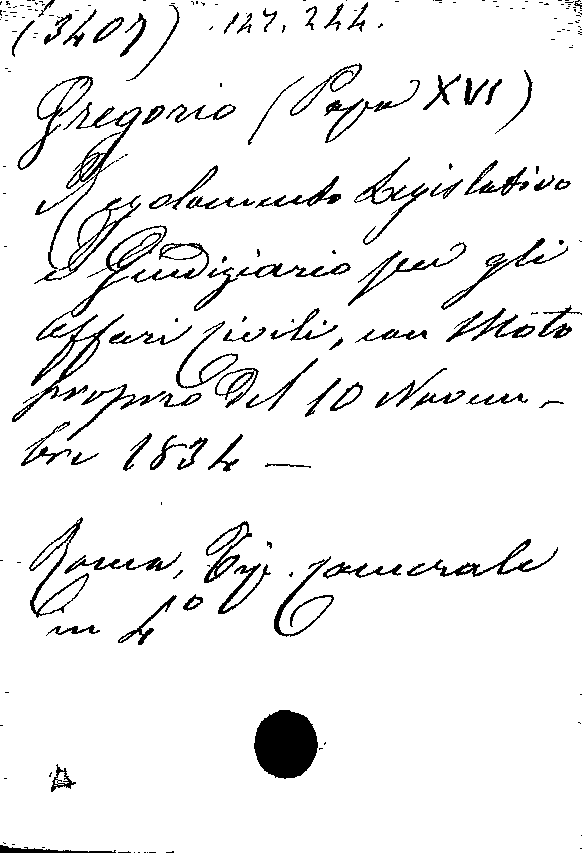 (3407) 127.244.
Gregorio (Papa XVI)
Regolamento Legislativo
e Giudiziario per gli
affari civili, con Moto
proprio del 10 Novem-
bre 1834 —
Roma, Tip. Camerale
in 4°